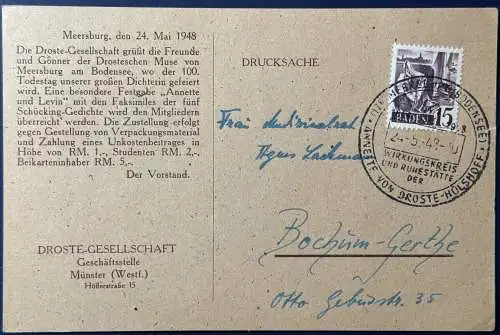 Meersburg, den 24. Mai 1948
Die Droste-Gesellschaft grüßt die Freunde
und Gönner der Drosteschen Muse von
Meersburg am Bodensee, wo der 100.
Todestag unserer großen Dichterin gefeiert
wird. Eine besondere Festgabe „Annette
und Levin" mit den Faksimiles der fünf
Schücking-Gedichte wird den Mitgliedern
überreicht werden. Die Zustellung erfolgt
gegen Gestellung von Verpackungsmaterial
und Zahlung eines Unkostenbeitrages in
Höhe von RM. 1,-, Studenten RM. 2,-,
Beikarteninhaber RM. 5,-.
Der Vorstand.
DROSTE-GESELLSCHAFT
Geschäftsstelle
Münster (Westf.)
Höfferstraße 15
DRUCKSACHE
BADEN 15
MEERSBURG (BODENSEE)
24.-5.-48.-10
WIRKUNGSKREIS
UND RUHESTÄTTE
DER
ANNETTE VON DROSTE-HÜLSHOFF
Frau
Agnes
Bochum-Gerthe
Otto 35